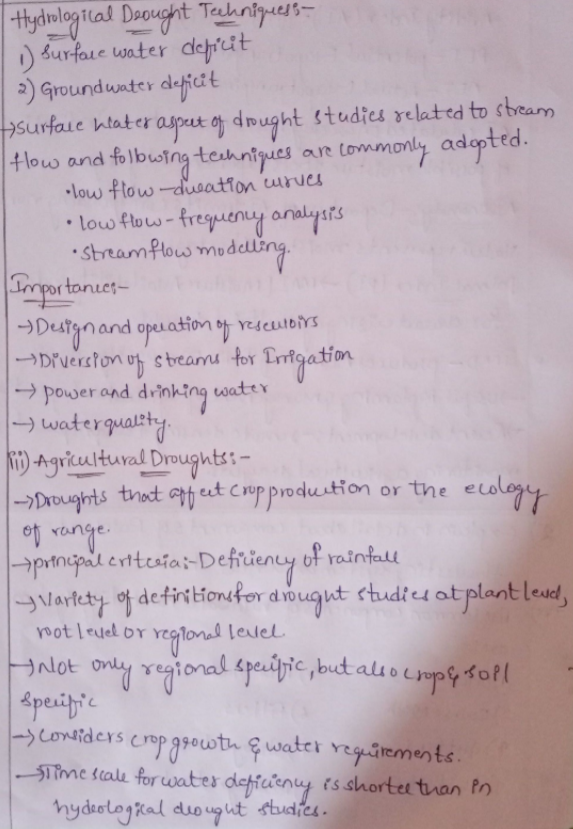 Hydrological Drought Techniques:-
1) Surface water deficit
2) Groundwater deficit
→Surface water aspect of drought studies related to stream
flow and following techniques are commonly adopted.
• low flow-duration curves
• low flow-frequency analysis
• streamflow modelling.
Importance:-
→Design and operation of reservoirs
→Diversion of streams for Irrigation
→ power and drinking water
→ water quality.
iii) Agricultural Droughts:-
→Droughts that affect crop production or the ecology
of range.
→principal criteria:- Deficiency of rainfall
→Variety of definitions for drought studies at plant level,
root level or regional level
→Not only regional specific, but also crop & soil
specific
→Considers crop growth & water requirements.
→Time scale for water deficiency is shorter than in
hydrological drought studies.